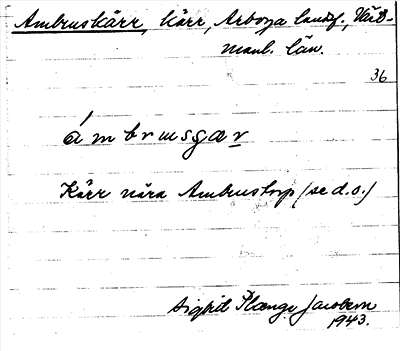 Ambruskärr, kärr, Arboga landsf., Väst-
manl. län.
36
ámbrusgær
Kärr nära Ambrustorp (se d.o.)
Sigfrid Plange Jacobson
1943.